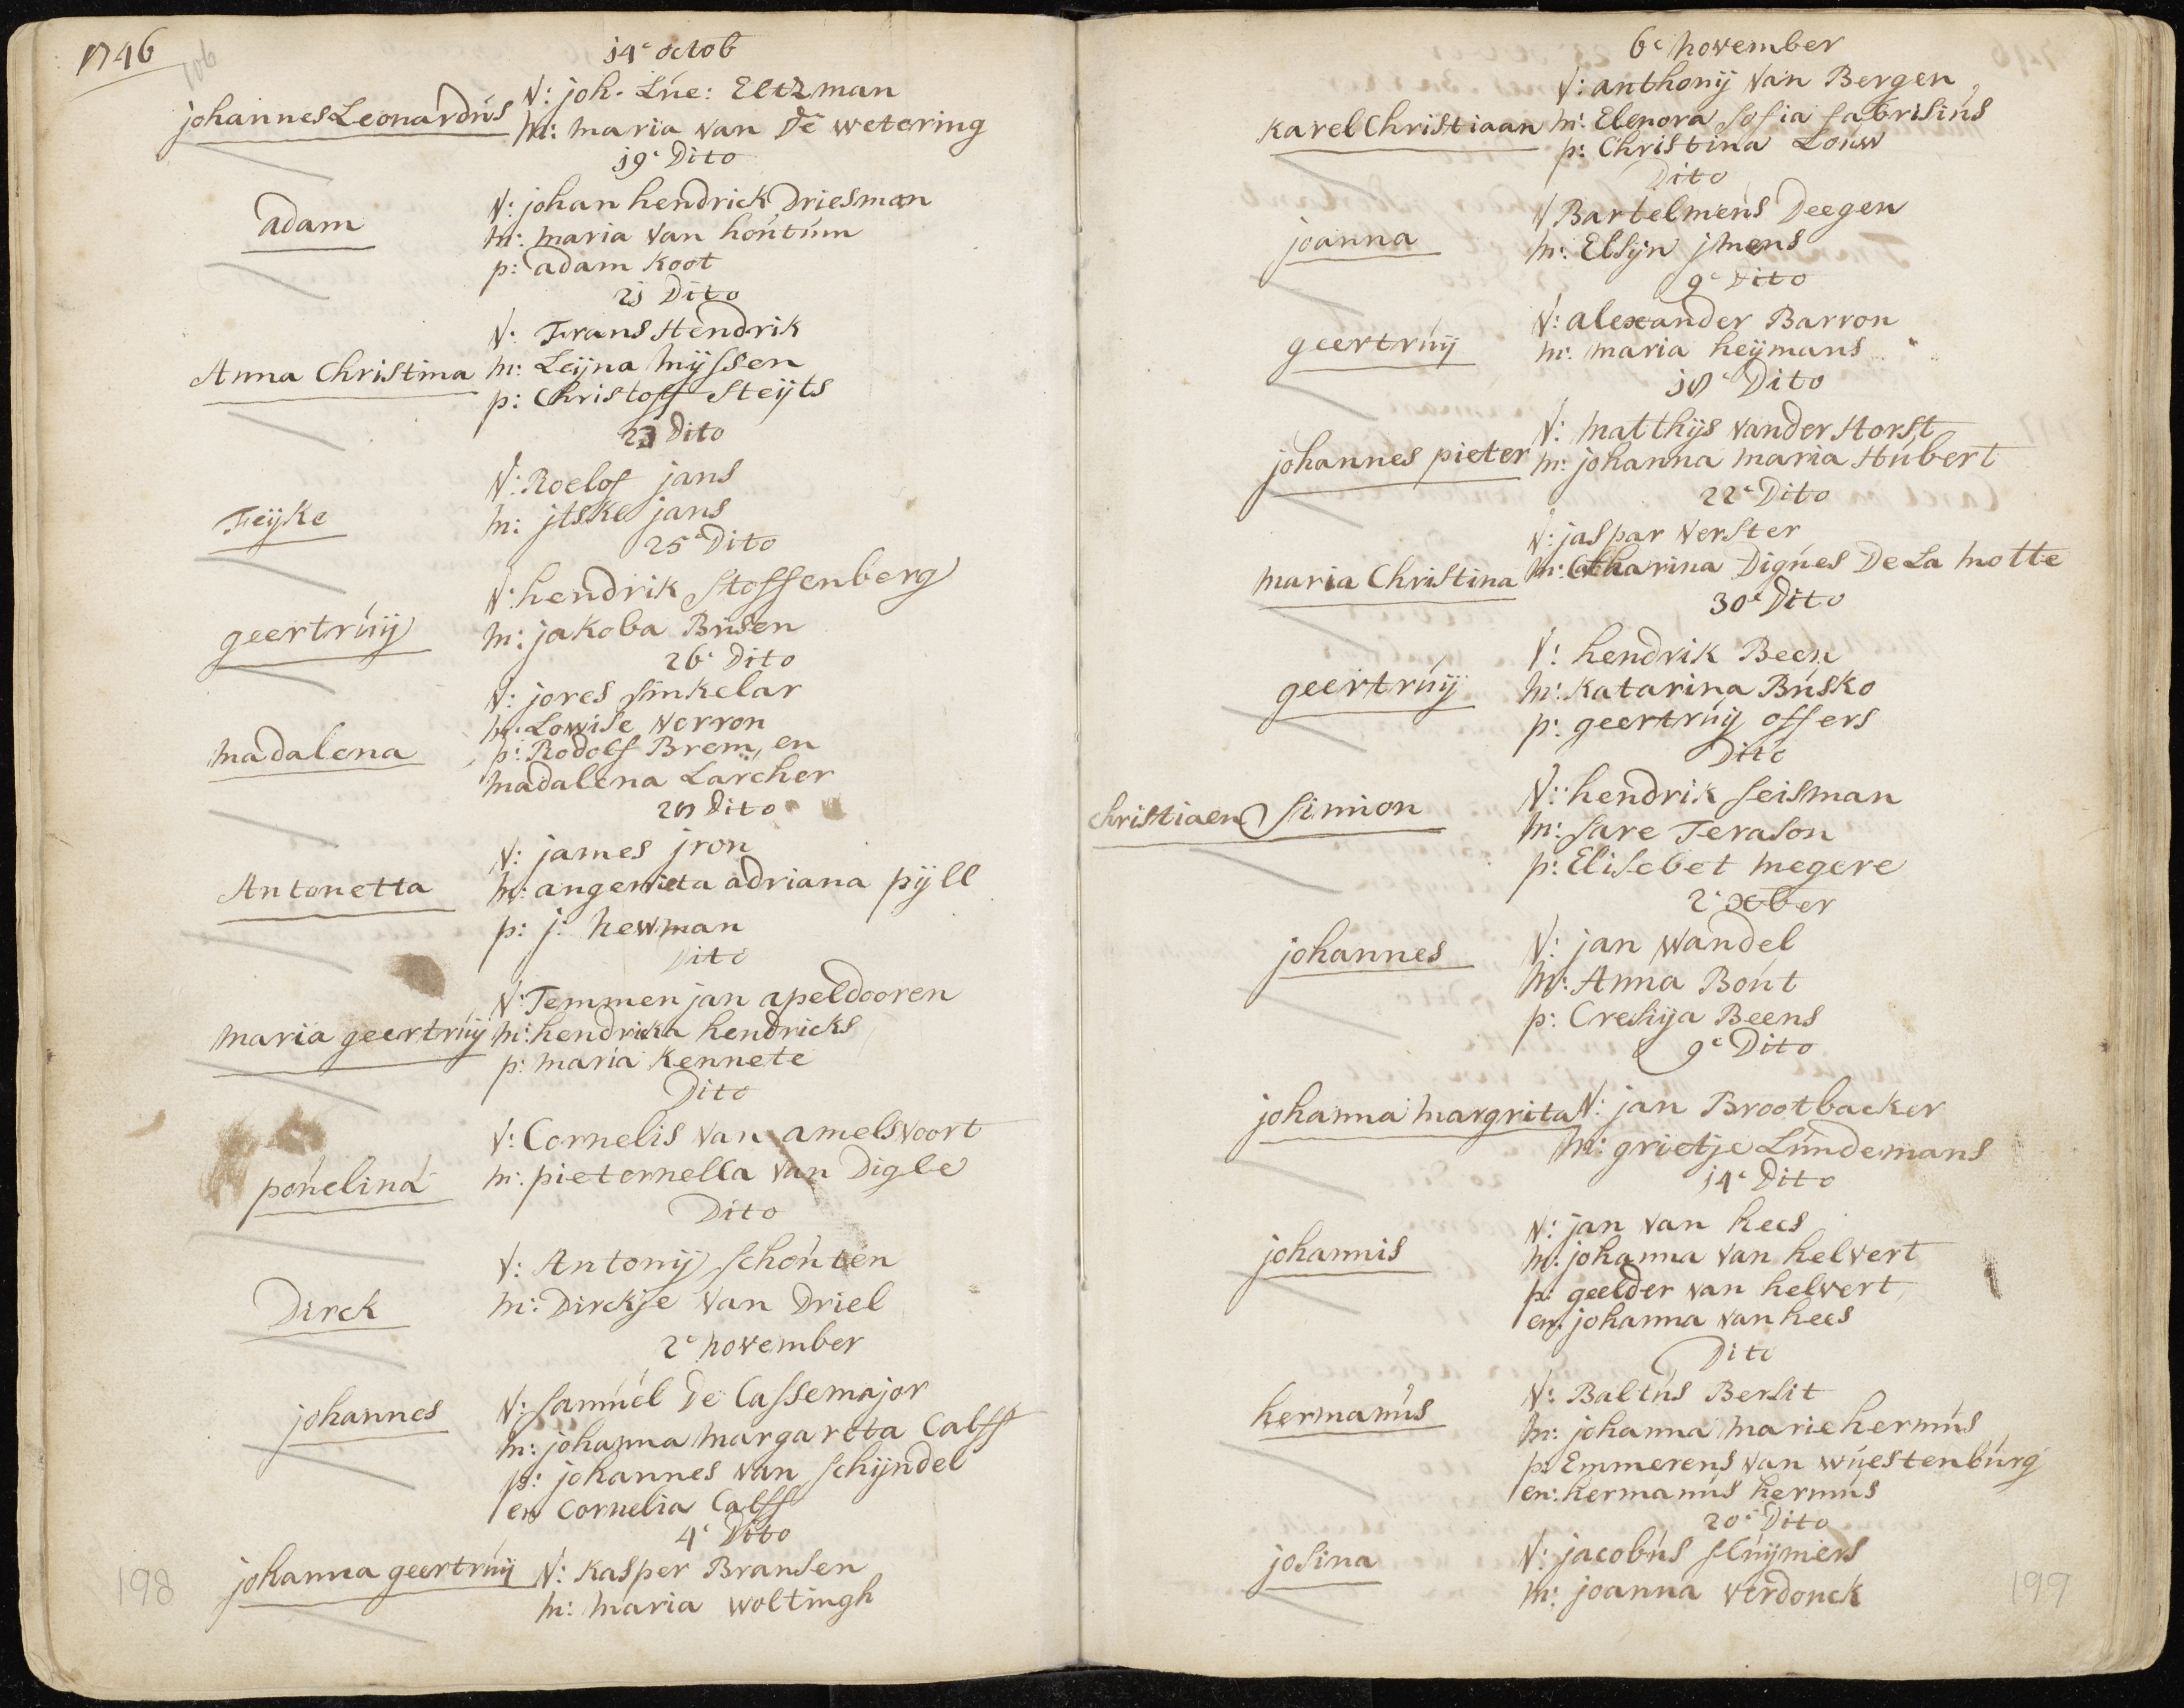 1746
106
14e octob
V: joh. Lúe: Eltzman
johannes Leonardús
m: maria van De wetering
19e Dito
V: johan hendrick Driesman
adam
m: maria van hoútúm
p: adam Koot
21 Dito
V: Frans Hendrik
Anna Christina
m: Leijna Mijssen
p: Christoff Steijts
23 Dito
V: Roelof jans
Feijke
m: jtske jans
25e Dito
V: hendrik Stoffenberg
geertrúij
m: jakoba Búsen
26e Dito
V: jores sinkelar
m: Lowise Verron
madalena
p: Rodolf Brem, en
madalena Larcher
27 Dito
V: james jron
Antonetta
m: angenieta adriana pijll
p: j: hewman
Dito
V: Temmen jan apeldooren
maria geertrúij
m: hendricka hendricks
p: maria Kennete
Dito
V: Cornelis van amelsvoort
poúelina
m: pieternella van Digle
Dito
V: Antonij schoúten
Dirck
m: Dirckje van Driel
2e november
V: samúel De Cassemajor
johannes
m: johanna margareta Calff
p: johannes van schijndel
en Cornelia Calff
4e Dito
johanna geertrúij
V: Kasper Bransen
m: maria woltingh
198
6e november
V: anthonij van Bergen
Karel Christiaan
m: Elenora sofia fabrisiús
p: Christina Loúw
Dito
V Bartelmeús Deegen
joanna
m: Elsijn jmens
9e Dito
V: alexander Barron
geertrúij
m: maria heijmans
17e Dito
V: matthijs vander Horst
johannes pieter
m: johanna maria Húbert
22e Dito
V: jaspar Verster
maria Christina
m: Catharina Digúes De La motte
30e Dito
V: hendrik Been
geertrúij
m: Katarina Búsko
p: geertrúij offers
Dito
V: hendrik seisman
christiaen Simion
m: sare Terason
p: Elisebet megere
2e xber
V: jan wandel
johannes
m: Anna Boút
p: Cresija Beens
9e Dito
johanna margrita
V: jan Brootbacker
m: grietje Lúndemans
14e Dito
V: jan van hees
johannis
m: johanna van helvert
p: geelder van helvert
en: johanna van hees
Dito
V: Baltús Bersit
hermanús
m: johanna marie hermús
p: Emmerens van wúestenbúrg
en: hermanús hermús
20e Dito
V: jacobús slúijmers
josina
m: joanna verdonck
199